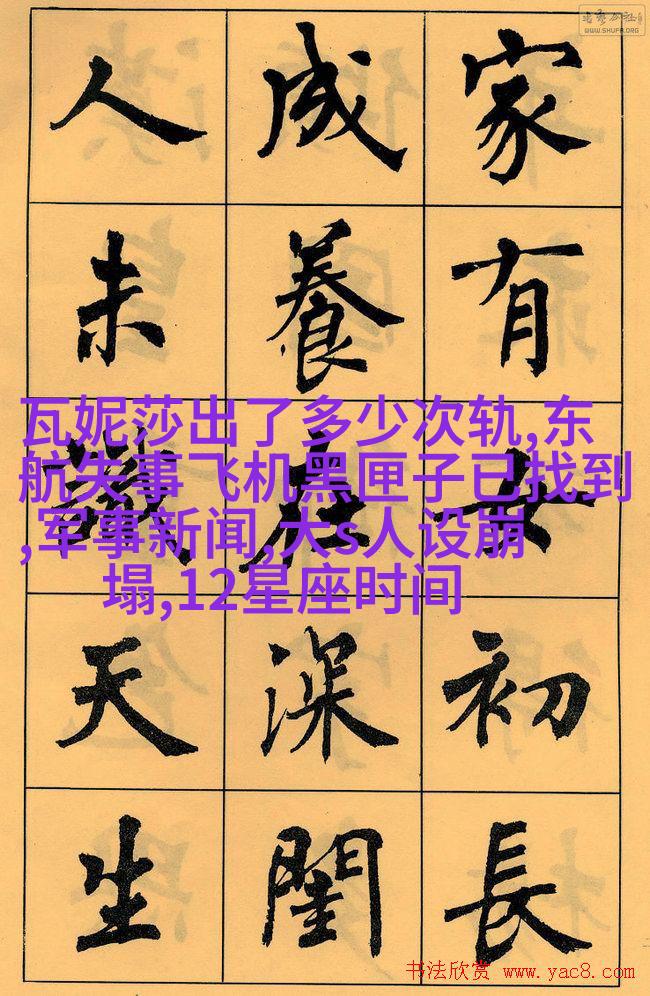 WWW.SHUFA.ORG
家有女初長
成養在深閨
人未識天生
瓦妮莎出了多少次轨,东
航失事飞机黑匣子已找到
,军事新闻,大s人设崩
塌,12星座时间
书法欣赏 www.yac8.com